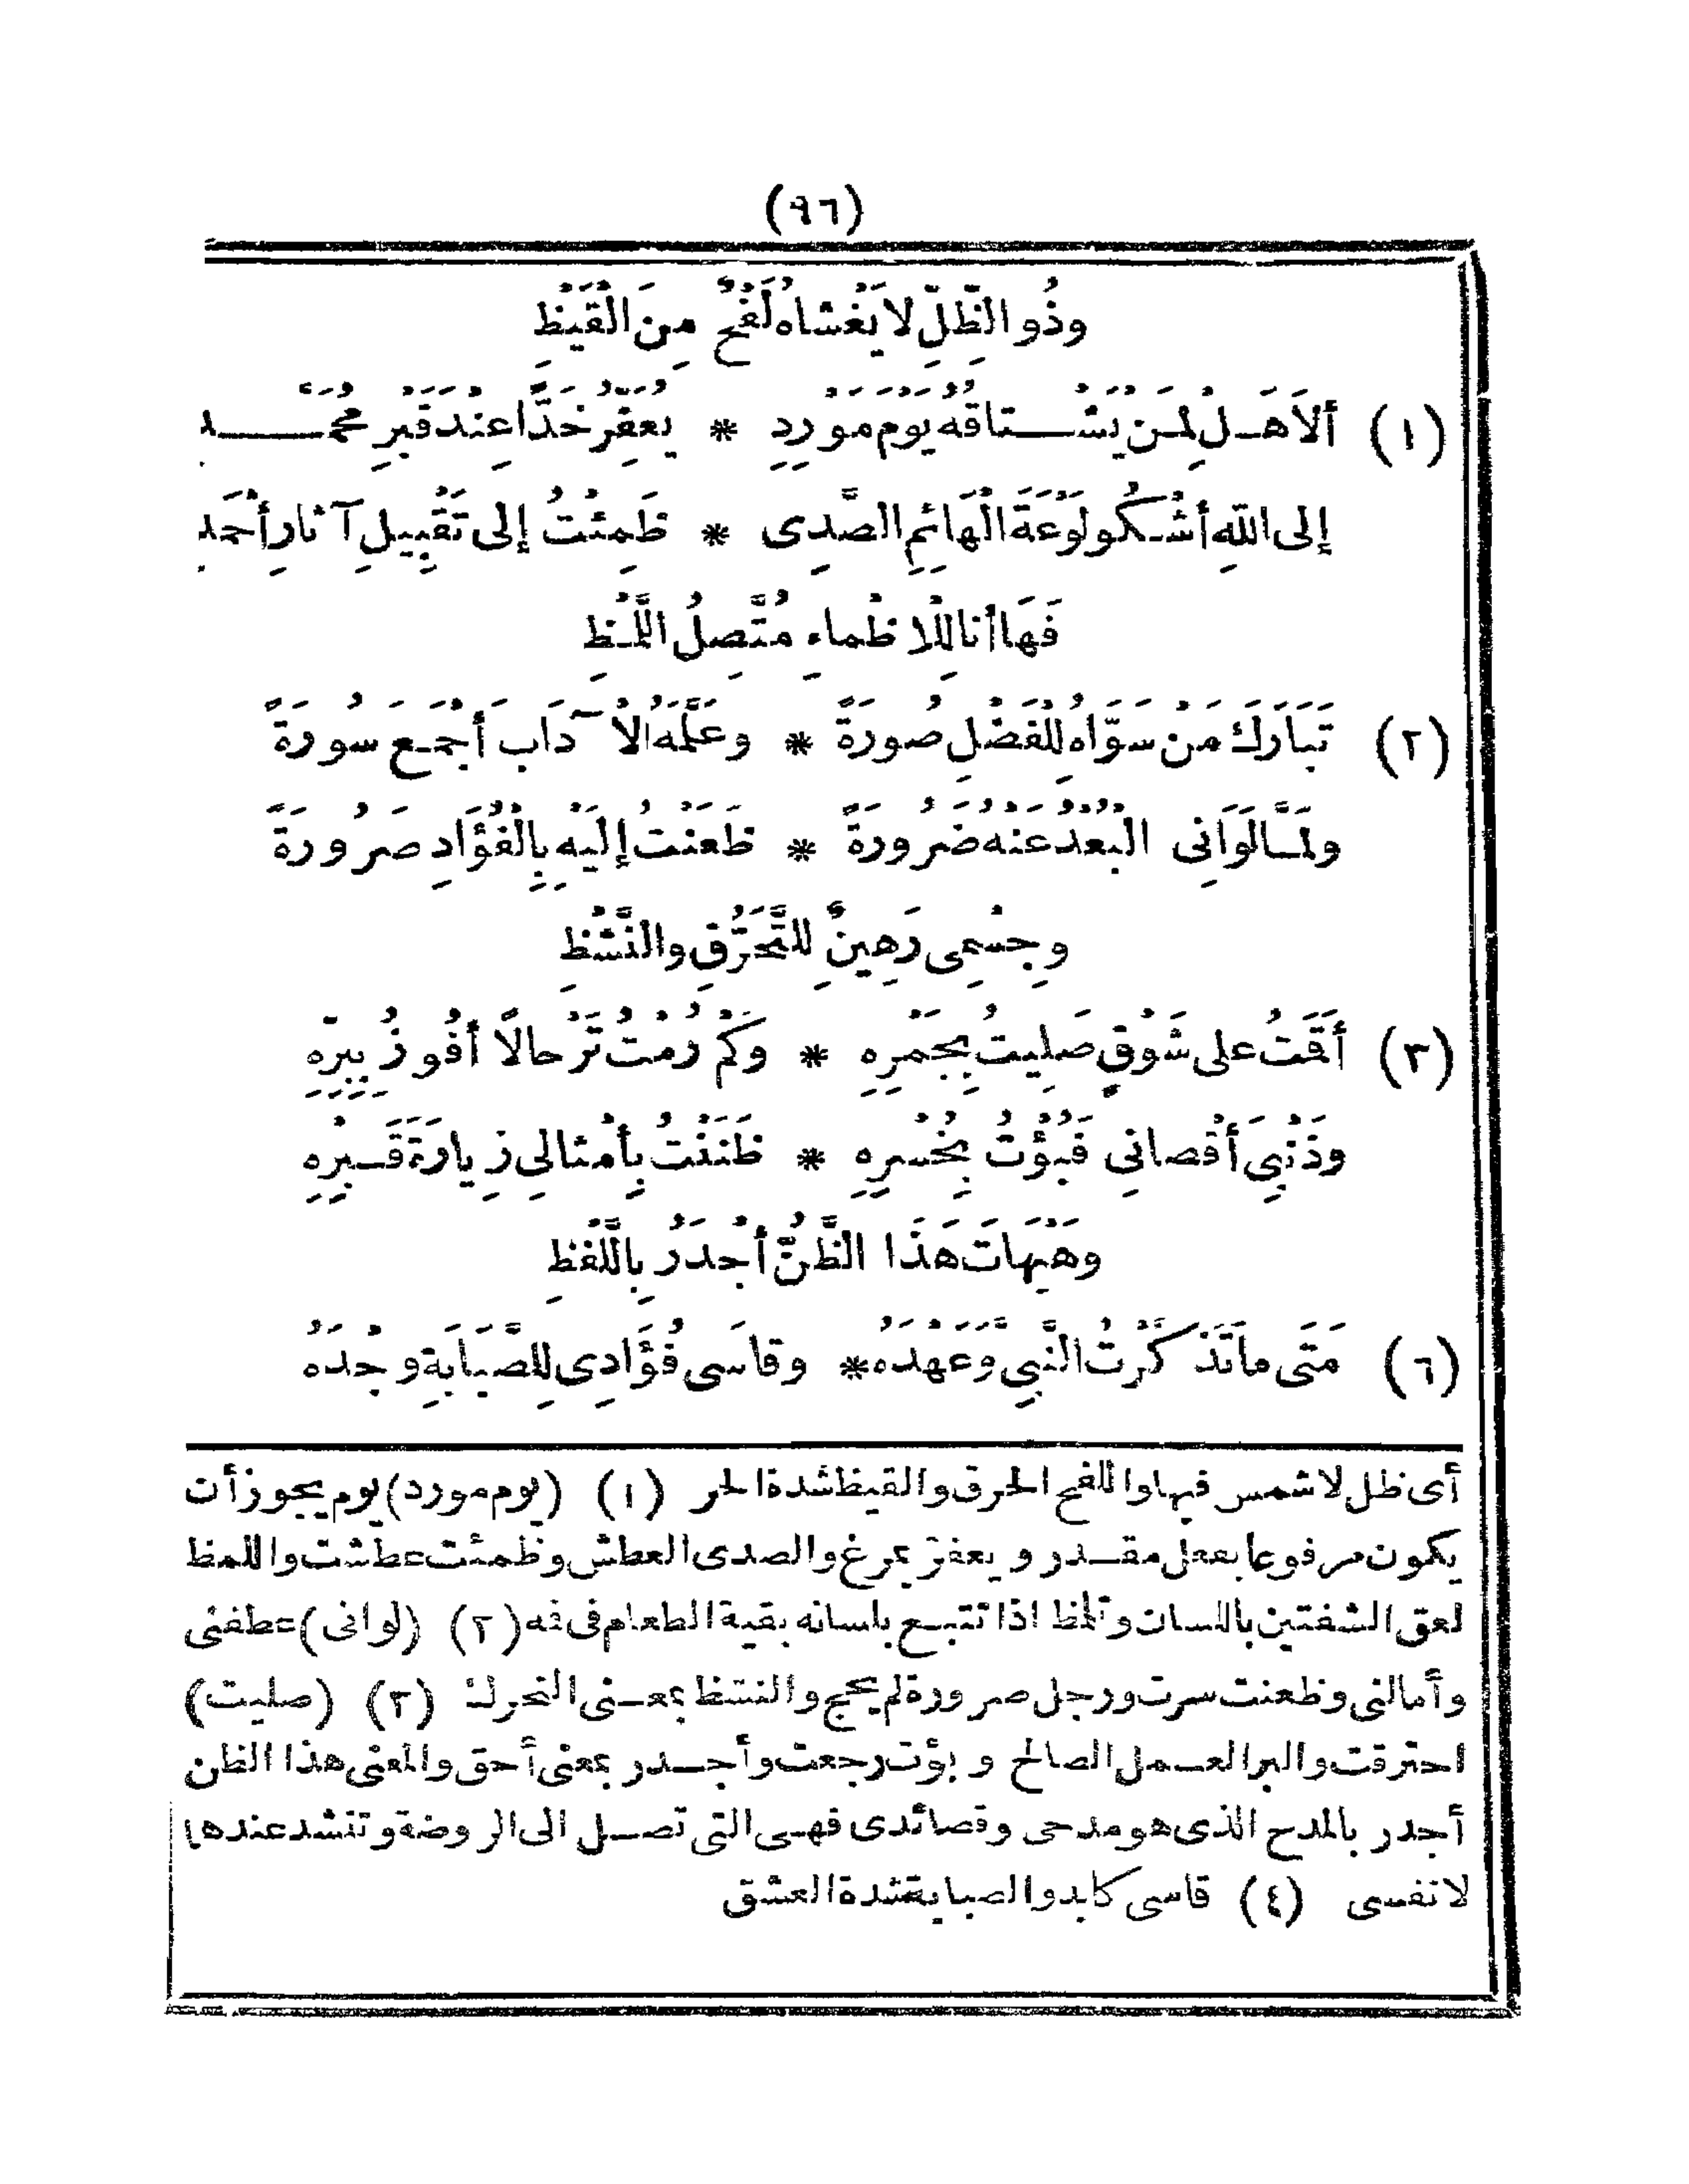 (٩٦)
وذُو الظِّلِّ لا يَغْشاهُ لَفْحٌ مِنَ الْقَيْظِ
(١) أَلاَ هَلْ لِمَنْ يَشْتاقُهُ يَوْمَ مَوْرِدِ * يُعَفِّرُ خَدًّا عِنْدَ قَبْرِ مُحَمَّدِ
إلى اللهِ أشْكُو لَوْعَةَ الْهَائِمِ الصَّدِى * ظَمِئْتُ إلى تَقْبِيلِ آثارِ أحْمَدِ
فَهَا أنا لِلْاظْماءِ مُتَّصِلُ اللَّمْظِ
(٢) تَبَارَكَ مَنْ سَوَّاهُ لِلْفَضْلِ صُورَةً * وعَلَّمَهُ الْآدَابَ أجْمَعَ سُورَةً
ولَمَّا لَوَانِى الْبُعْدُ عَنْهُ ضَرُورَةً * ظَعَنْتُ إلَيْهِ بِالْفُؤَادِ صَرُورَةً
وجِسْمِى رَهِينٌ للتَّحَرُّقِ والنَّشْظِ
(٣) أقَمْتُ على شَوْقٍ صَلِيتُ بِجَمْرِهِ * وكَمْ رُمْتُ تَرْحالًا أفُوزُ بِبِرِّهِ
وذَنْبِى أقْصانِى فَبُؤْتُ بِخُسْرِهِ * ظَنَنْتُ بِأمْثالِى زِيارَةَ قَبْرِهِ
وهَيْهَاتَ هَذَا الظَّنُّ أجْدَرُ بِاللَّفْظِ
(٦) مَتَى ما تَذَكَّرْتُ النَّبِىَّ وعَهْدَهُ * وقاسَى فُؤَادِى لِلصَّبَابَةِ وجْدَهُ
أى ظل لا شمس فيها واللفح الحرق والقيظ شدة الحر (١) (يوم مورد) يوم يجوز أن
يكون مرفوعا بفعل مقدر و يعفر يمرغ والصدى العطش وظمئت عطشت واللمظ
لعق الشفتين باللسان وتلمظ اذا تتبع بلسانه بقية الطعام فى فه (٢) (لوانى) عطفنى
وأمالنى وظعنت سرت ورجل صرورة لم يحج والنشظ بمعنى التحرك (٣) (صليت)
احترقت والبر العمل الصالح و بؤت رجعت وأجدر بمعنى أحق والمعنى هذا الظن
أجدر بالمدح الذى هو مدحى وقصائدى فهى التى تصل الى الروضة وتنشد عندها
لا نفسى (٤) قاسى كابد والصبابة شدة العشق